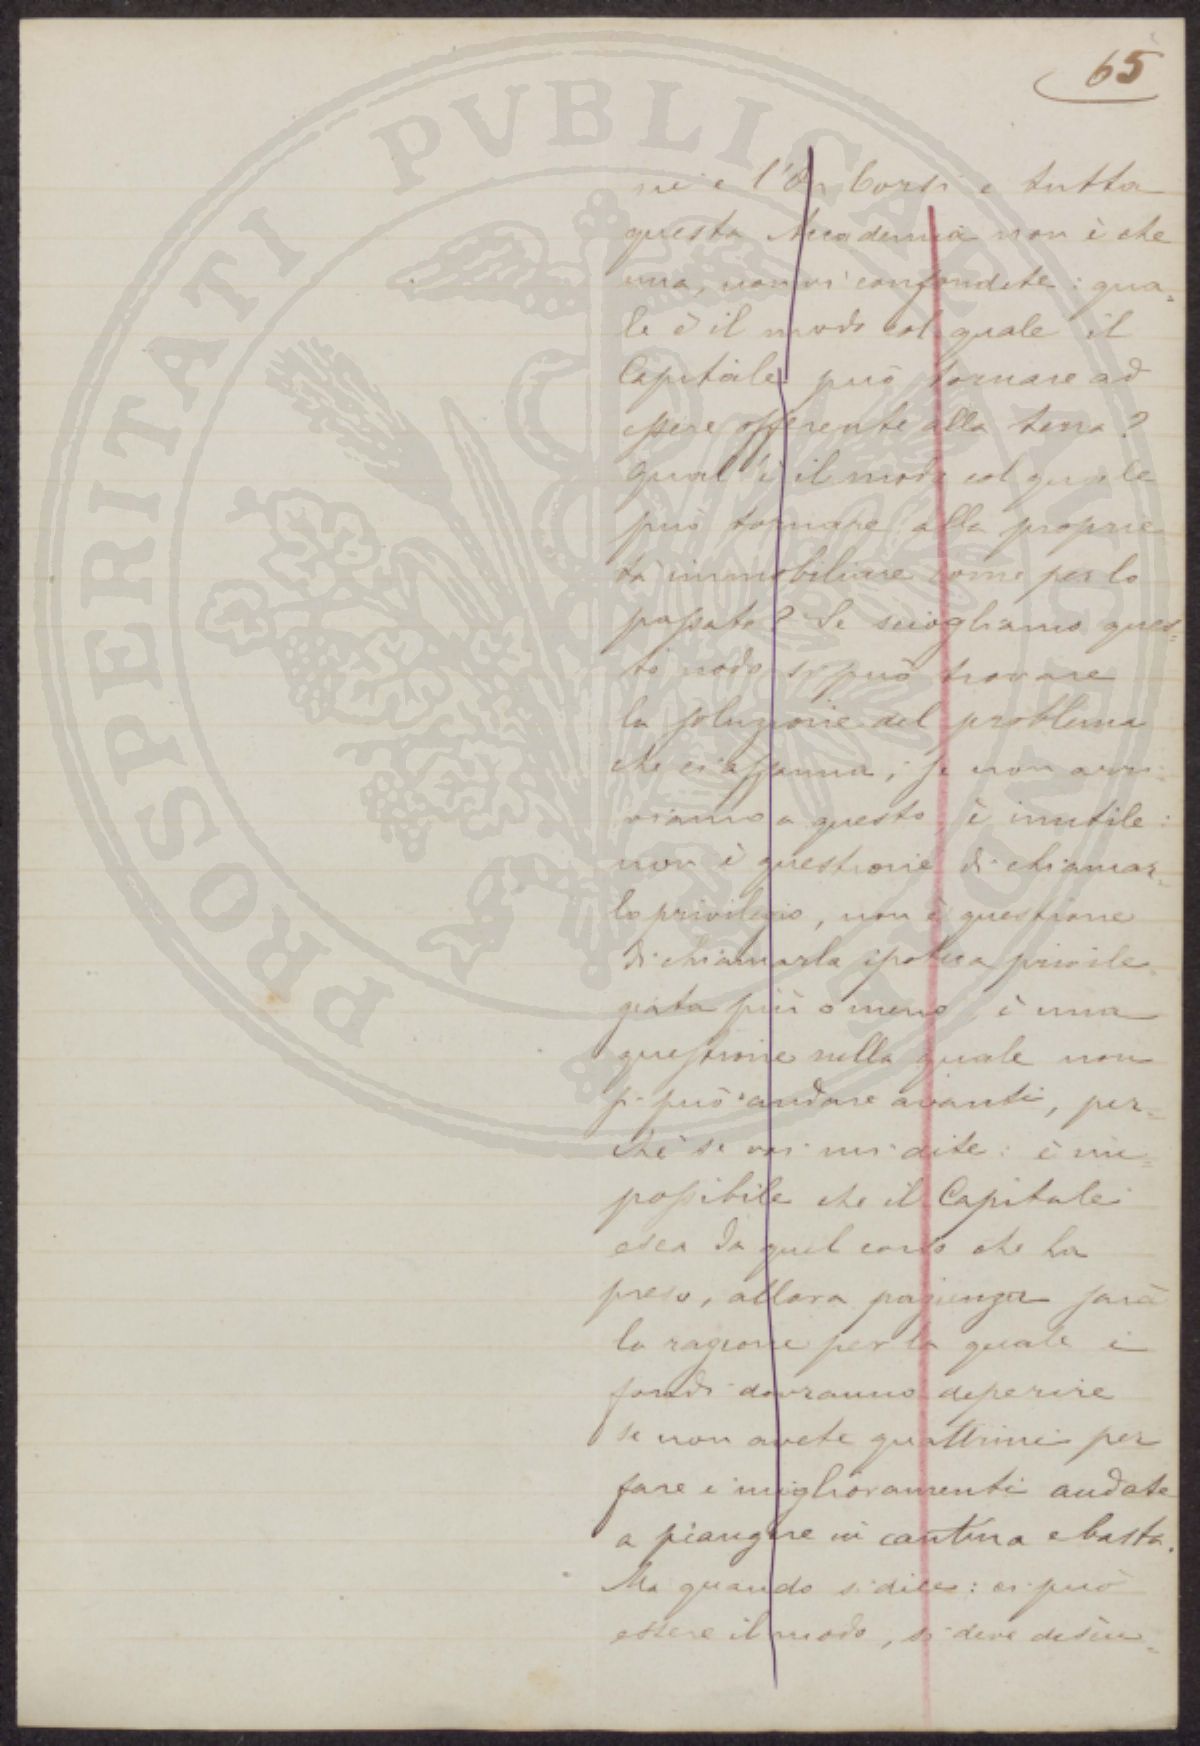 65
PROSPERITATI PVBLICAE AVGENDAE
e l'On. Corsi e tutta
questa Accademia non è che
una, non vi confondete: qua=
le è il modo col quale il
Capitale può tornare ad
essere offerente alla terra?
Qual'è il modo col quale
può tornare alla proprie
tà immobiliare come per lo
passato? Se sciogliamo ques=
to nodo si può trovare
la soluzione del problema
che ci affanna; se non arri=
viamo a questo, è inutile:
non è questione di chiamar=
lo privilegio, non è questione
di chiamarla ipoteca privile=
giata più o meno, è una
questione nella quale non
si può andare avanti, per=
chè se voi mi dite: è im=
possibile che il Capitale
esca da quel corso che ha
preso, allora pazienza sarà
la ragione per la quale i
fondi dovranno deperire
se non avete quattrini per
fare i miglioramenti andate
a piangere in cantina e basta.
Ma quando si dice: ci può
essere il modo, si deve